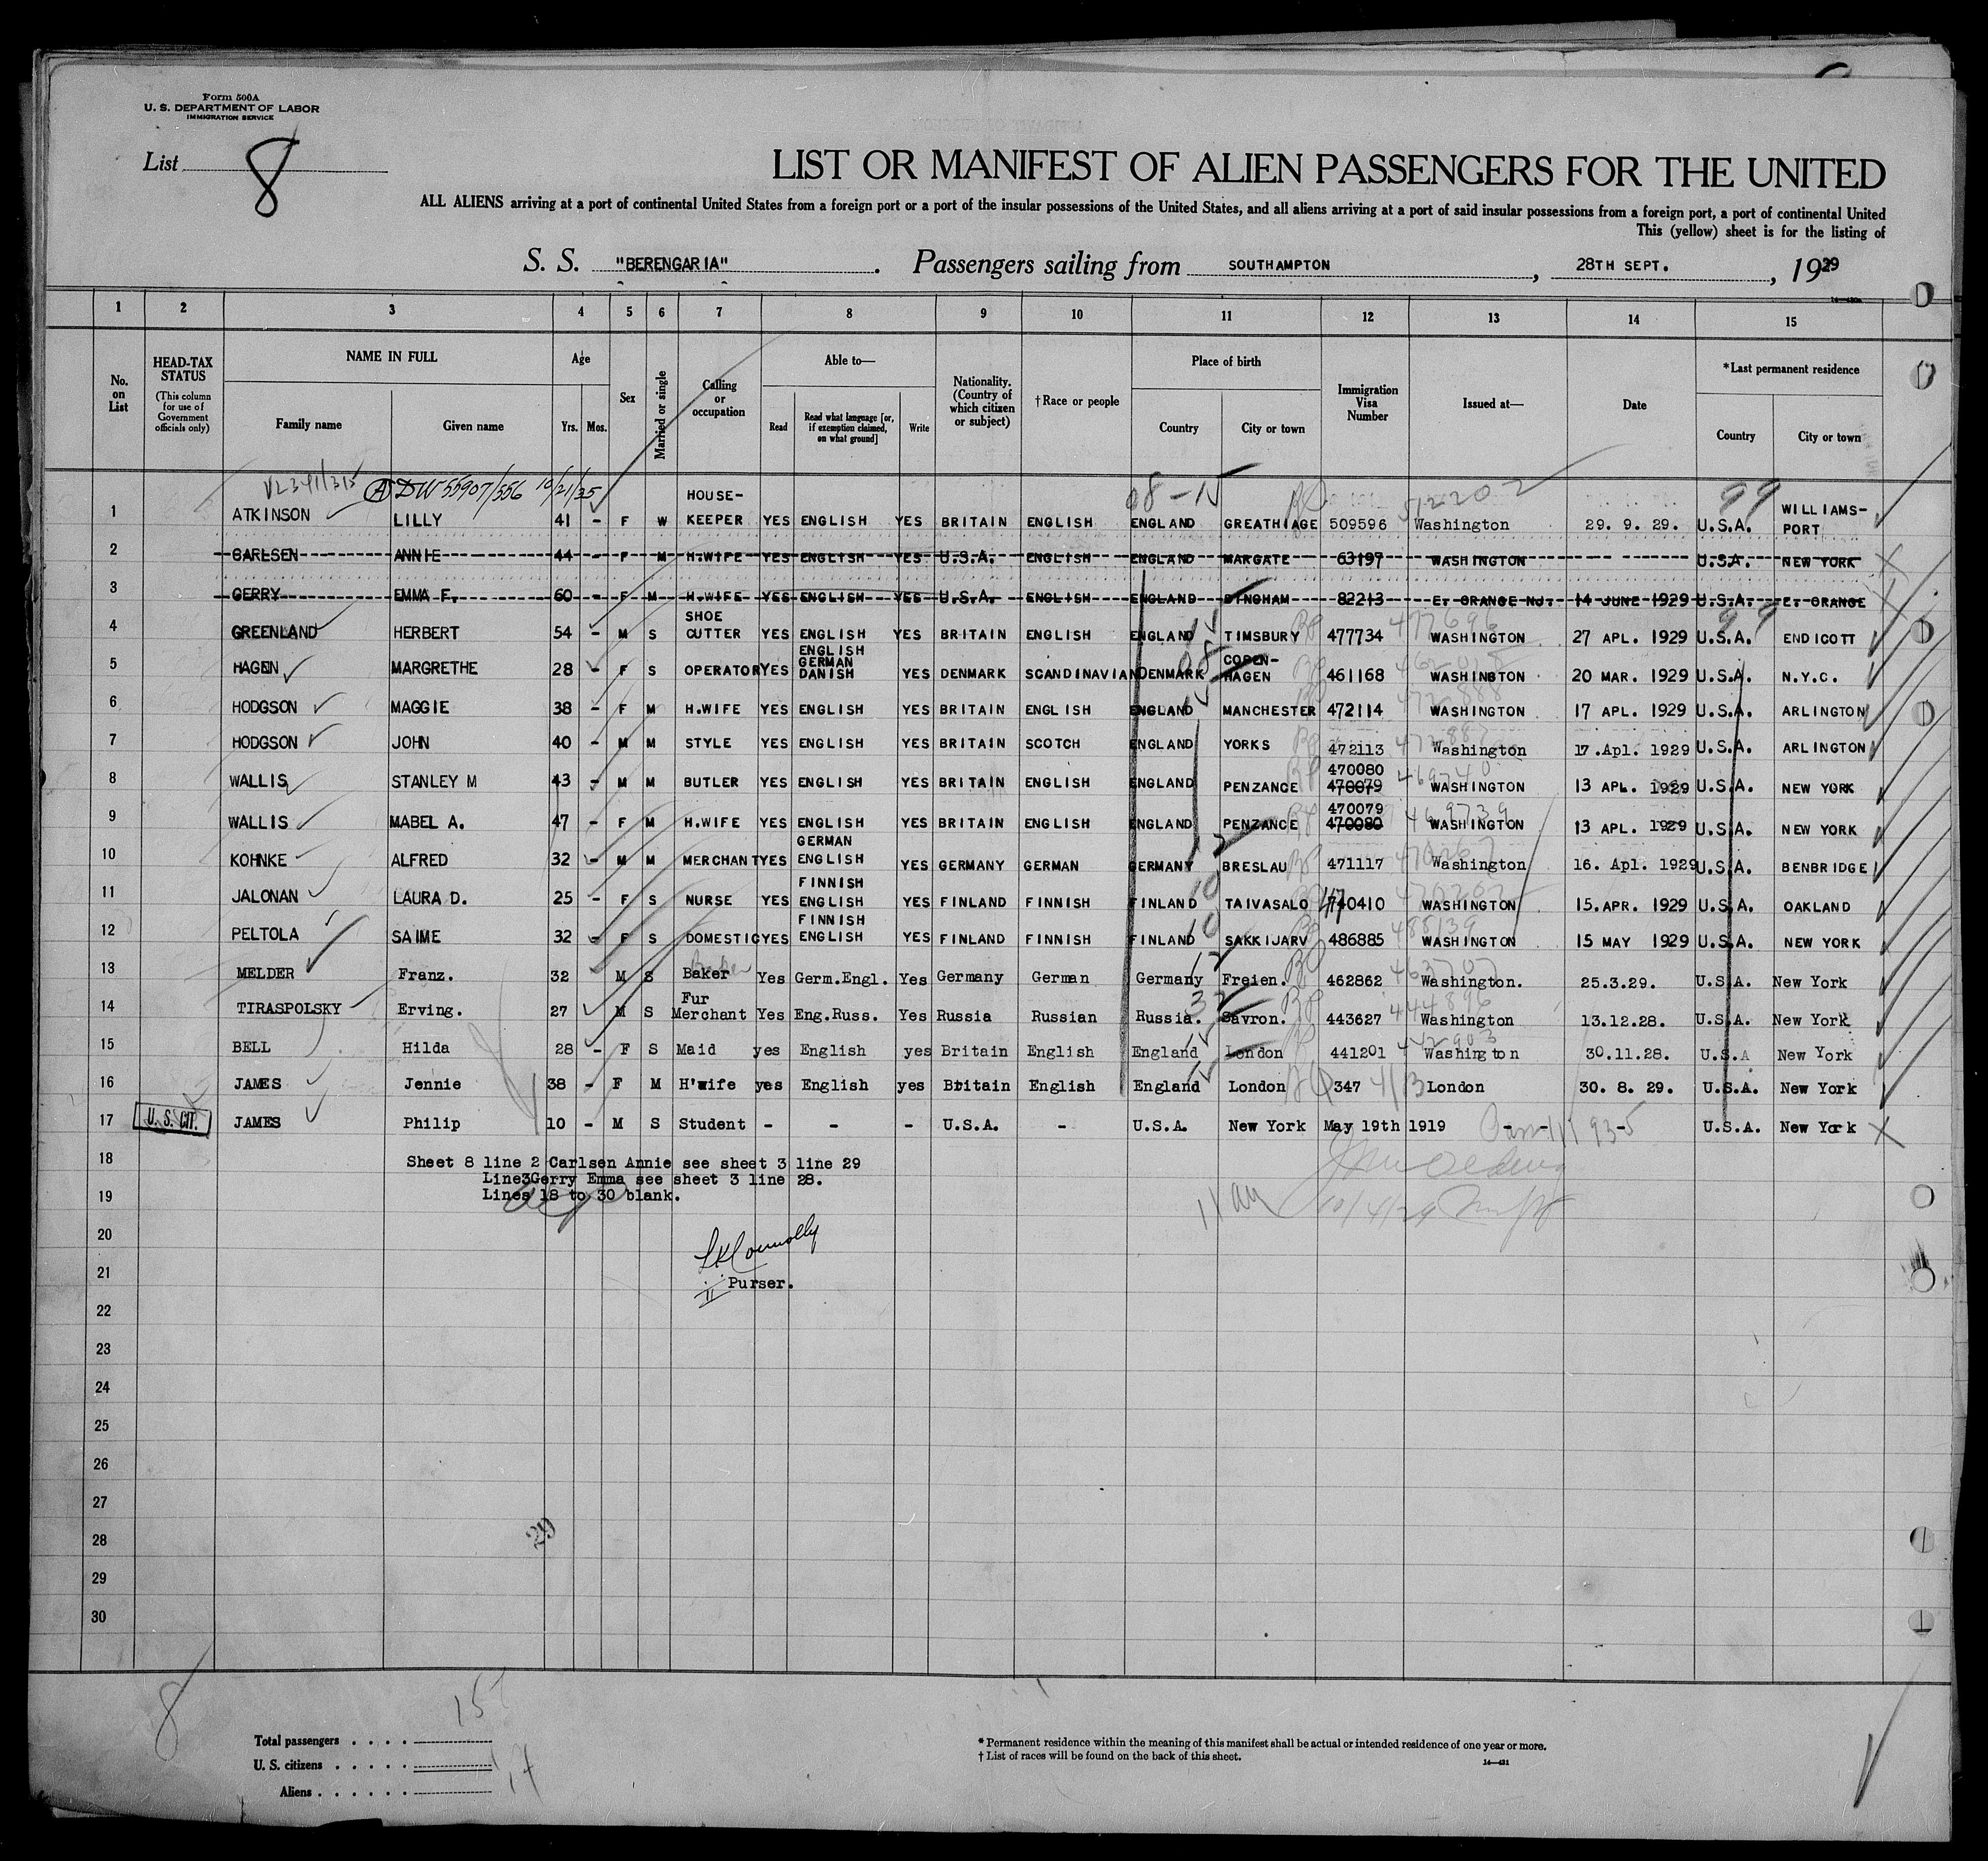 Form 500A
U. S. DEPARTMENT OF LABOR
IMMIGRATION SERVICE
List 8
LIST OR MANIFEST OF ALIEN PASSENGERS FOR THE UNITED
ALL ALIENS arriving at a port of continental United States from a foreign port or a port of the insular possessions of the United States, and all aliens arriving at a port of said insular possessions from a foreign port, a port of continental United
This (yellow) sheet is for the listing of
S. S. "BERENGARIA". Passengers sailing from SOUTHAMPTON, 28TH SEPT., 1929
1 2 3 4 5 6 7 8 9 10 11 12 13 14 15
No. on List
HEAD-TAX STATUS
(This column for use of Government officials only)
NAME IN FULL
Family name Given name
Age
Yrs. Mos.
Sex
Married or single
Calling or occupation
Able to—
Read
Read what language [or, if exemption claimed, on what ground]
Write
Nationality. (Country of which citizen or subject)
†Race or people
Place of birth
Country City or town
Immigration Visa Number
Issued at—
Date
*Last permanent residence
Country City or town
DW 55907/556 10/21/35
08-15 512202 99
1 ATKINSON LILLY 41 - F W HOUSE-KEEPER YES ENGLISH YES BRITAIN ENGLISH ENGLAND GREATHIAGE 509596 Washington 29. 9. 29. U.S.A. WILLIAMS-PORT
2 CARLSEN ANNIE 44 - F M H.WIFE YES ENGLISH YES U.S.A. ENGLISH ENGLAND MARGATE 63197 WASHINGTON U.S.A. NEW YORK
3 GERRY EMMA F. 60 - F M H.WIFE YES ENGLISH YES U.S.A. ENGLISH ENGLAND DINGHAM 82213 E. ORANGE NJ. 14 JUNE 1929 U.S.A. E. ORANGE
4 GREENLAND HERBERT 54 - M S SHOE CUTTER YES ENGLISH YES BRITAIN ENGLISH ENGLAND TIMSBURY 477734 477696 WASHINGTON 27 APL. 1929 U.S.A. ENDICOTT
5 HAGEN MARGRETHE 28 - F S OPERATOR YES ENGLISH GERMAN DANISH YES DENMARK SCANDINAVIAN DENMARK COPEN-HAGEN 461168 WASHINGTON 20 MAR. 1929 U.S.A. N.Y.C.
6 HODGSON MAGGIE 38 - F M H.WIFE YES ENGLISH YES BRITAIN ENGLISH ENGLAND MANCHESTER 472114 472888 WASHINGTON 17 APL. 1929 U.S.A. ARLINGTON
7 HODGSON JOHN 40 - M M STYLE YES ENGLISH YES BRITAIN SCOTCH ENGLAND YORKS 472113 472887 Washington 17.Apl. 1929 U.S.A. ARLINGTON
8 WALLIS STANLEY M 43 - M M BUTLER YES ENGLISH YES BRITAIN ENGLISH ENGLAND PENZANCE 470080 470079 469740 WASHINGTON 13 APL. 1929 U.S.A. NEW YORK
9 WALLIS MABEL A. 47 - F M H.WIFE YES ENGLISH YES BRITAIN ENGLISH ENGLAND PENZANCE 470079 470080 469739 WASHINGTON 13 APL. 1929 U.S.A. NEW YORK
10 KOHNKE ALFRED 32 - M M MERCHANT YES GERMAN ENGLISH YES GERMANY GERMAN GERMANY BRESLAU 471117 Washington 16. Apl. 1929 U.S.A. BENBRIDGE
11 JALONAN LAURA D. 25 - F S NURSE YES FINNISH ENGLISH YES FINLAND FINNISH FINLAND TAIVASALO 470410 WASHINGTON 15.APR. 1929 U.S.A. OAKLAND
12 PELTOLA SAIME 32 - F S DOMESTIC YES FINNISH ENGLISH YES FINLAND FINNISH FINLAND SAKKIJARV 486885 488139 WASHINGTON 15 MAY 1929 U.S.A. NEW YORK
13 MELDER Franz. 32 M S Baker Yes Germ.Engl. Yes Germany German Germany Freien. 462862 463707 Washington. 25.3.29. U.S.A. New York
14 TIRASPOLSKY Erving. 27 M S Fur Merchant Yes Eng.Russ. Yes Russia Russian Russia. Savron. 443627 444896 Washington 13.12.28. U.S.A. New York
15 BELL Hilda 28 - F S Maid yes English yes Britain English England London 441201 442903 Washington 30.11.28. U.S.A New York
16 JAMES Jennie 38 - F M H'wife yes English yes Britain English England London 347 4113 London 30. 8. 29. U.S.A. New York
17 U.S. CIT. JAMES Philip 10 - M S Student - - - U.S.A. - U.S.A. New York May 19th 1919 - - - U.S.A. New York
18 Sheet 8 line 2 Carlsen Annie see sheet 3 line 29
Line3Gerry Emma see sheet 3 line 28.
19 Lines 18 to 30 blank.
10/4/29
20
Connolly
21 Purser.
22
23
24
25
26
27
28
29
29
30
8
15
Total passengers . . . .
U. S. citizens . . . . .
Aliens . . . . . .
* Permanent residence within the meaning of this manifest shall be actual or intended residence of one year or more.
† List of races will be found on the back of this sheet.
14—431